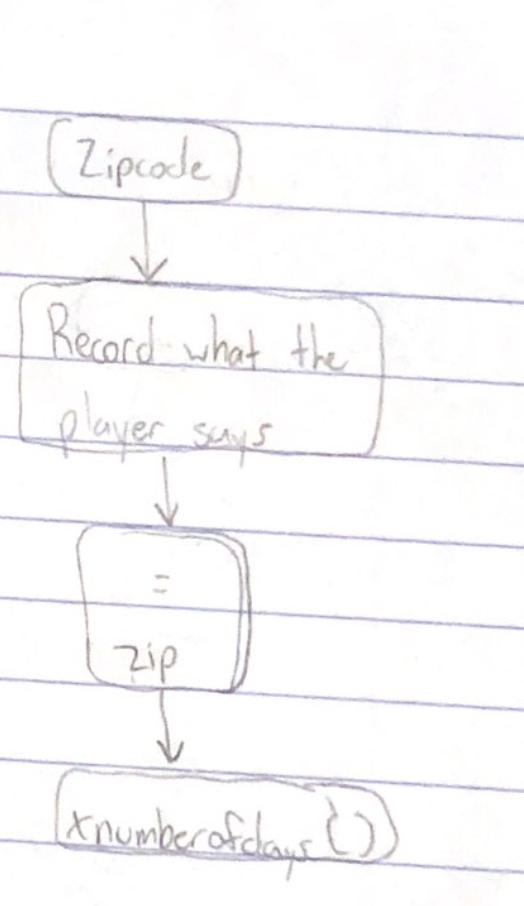 Zipcode
Record what the
player says
=
zip
xnumberofdays()